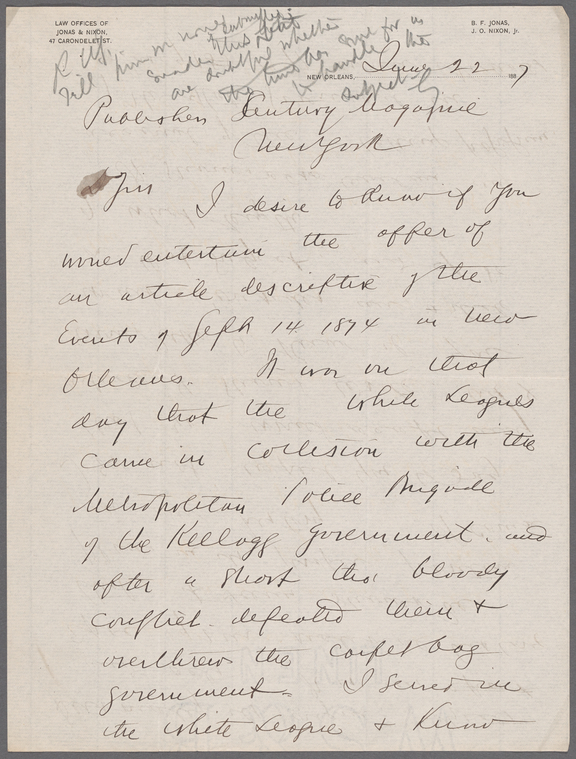 LAW OFFICES OF
JONAS & NIXON,
47 CARONDELET ST.
B. F. JONAS,
J. O. NIXON, Jr.
are doubtful whether
the time has come for us
to handle the
subject
NEW ORLEANS, June 22 1887
Publishers Century Magazine
New York
Sirs I desire to know if you
would entertain the offer of
an article descriptive of the
Events of Sept 14 1874 in New
Orleans. It was on that
day that the White Leagues
came in collision with the
Metropolitan Police Brigade
of the Kellogg government. and
after a short tho' bloody
conflict defeated them &
overthrew the carpet bag
government - I served in
the White League & Know